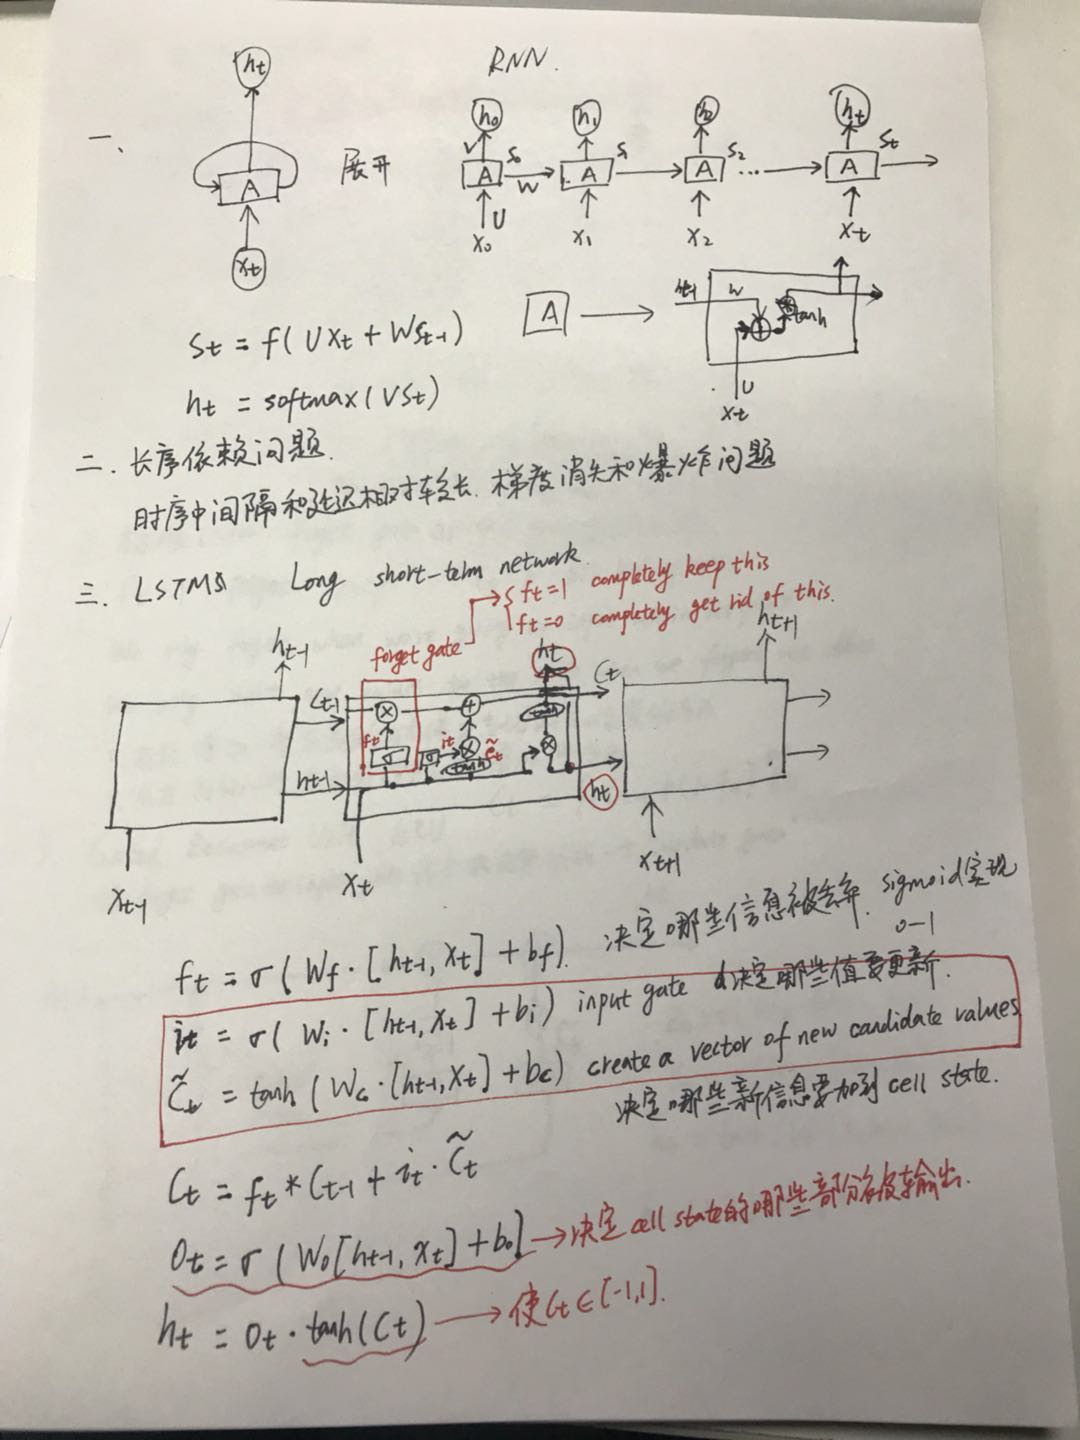 RNN.
一、
ht
A
xt
展开
h0 h1 h2 ht
V S0 S1 S2 ... St
A A A A
W
U
x0 x1 x2 xt
A
ht-1 W tanh
U
xt
St = f( Uxt + WSt-1 )
ht = softmax( VSt )
二. 长序依赖问题.
时序中间隔和延迟相对较长. 梯度消失和爆炸问题
三. LSTMs Long short-term network.
forget gate
ft=1 completely keep this
ft=0 completely get rid of this.
ht-1 ht ht+1
Ct-1 Ct
× +
ft it C̃t tanh
σ σ × tanh ×
ht-1 ht
xt-1 xt xt+1
ft = σ( Wf · [ht-1, xt] + bf ). 决定哪些信息被丢弃. sigmoid实现
0-1
it = σ( Wi · [ht-1, xt] + bi ) input gate 决定哪些值要更新.
C̃t = tanh ( Wc · [ht-1, xt] + bc ) create a vector of new candidate values
决定哪些新信息要加到 cell state.
Ct = ft * Ct-1 + it · C̃t
Ot = σ ( Wo[ht-1, xt] + bo] → 决定 cell state的哪些部分被输出.
ht = Ot · tanh(Ct) → 使Ct∈[-1,1].